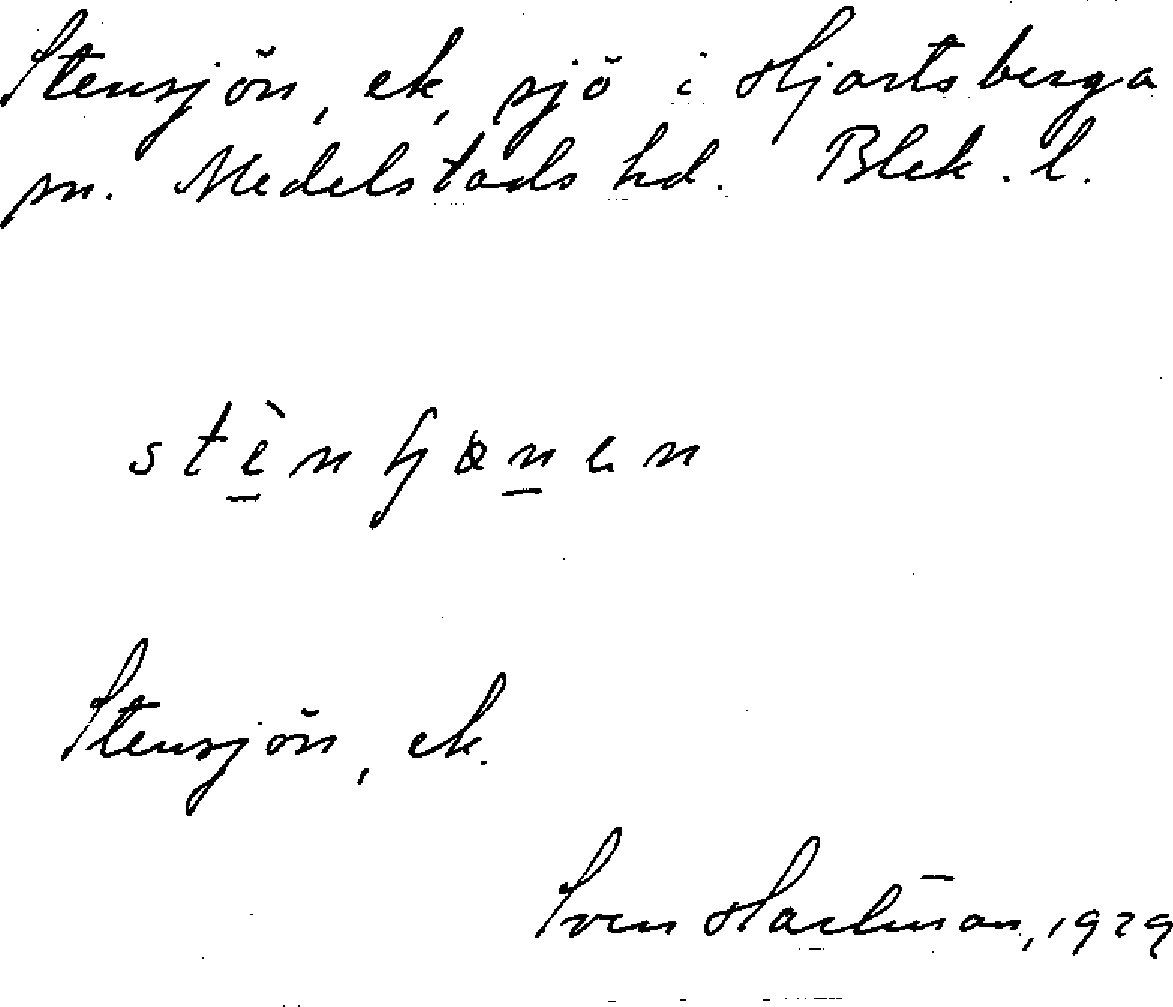 Stensjön, ek, sjö i Hjortsberga
sn. Medelstads hd. Blek. l.
Stensjön, ek.
Sven Hartman, 1929